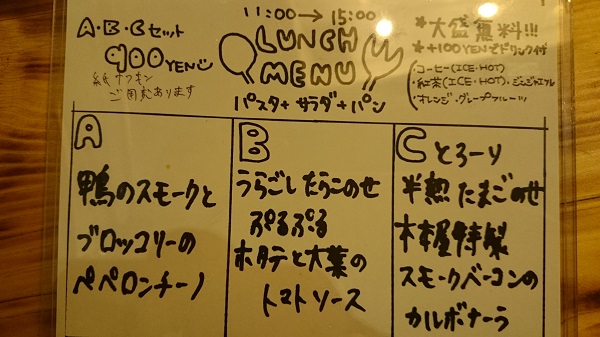 11:00→15:00
A・B・Cセット
900YEN
紙ナプキン
ご用意あります
LUNCH
MENU
パスタ+サラダ+パン
*大盛無料!!!
*+100YENでドリンク付
・コーヒー(ICE・HOT)
・紅茶(ICE・HOT)・ジンジャエール
・オレンジ・グレープフルーツ
A
鴨のスモークと
ブロッコリーの
ペペロンチーノ
B
うらごしたらこのせ
ぷるぷる
ホタテと大葉の
トマトソース
C とろーり
半熟たまごのせ
特製
スモークベーコンの
カルボナーラ